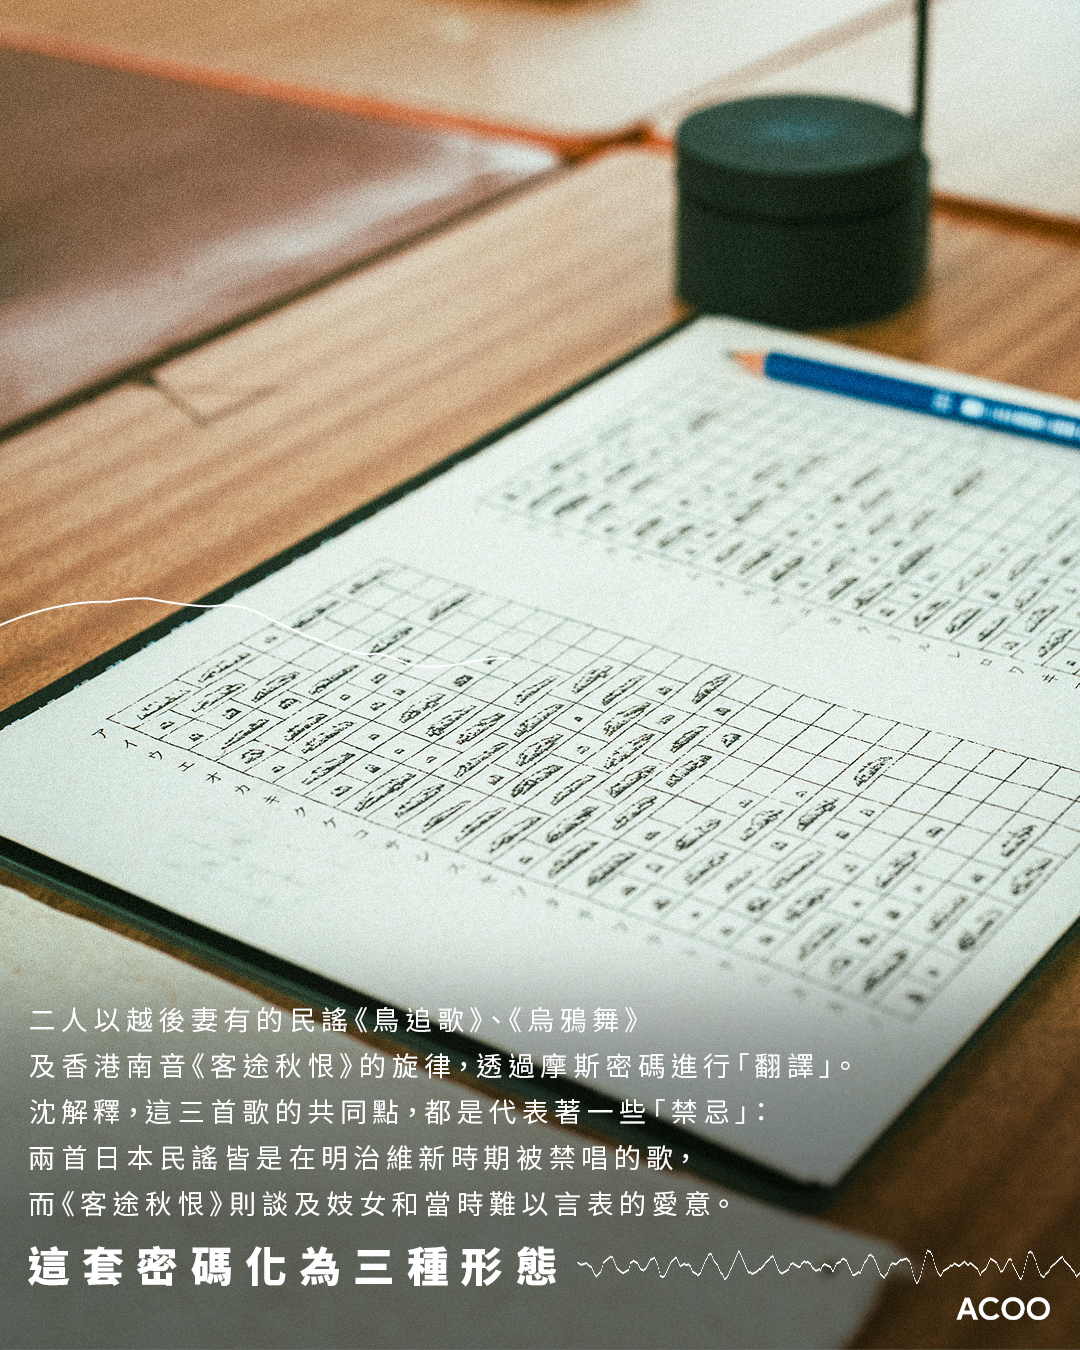 ア
イ
ウ
エ
オ
カ
キ
ク
ケ
コ
サ
シ
ス
セ
ソ
二人以越後妻有的民謠《鳥追歌》、《烏鴉舞》
及香港南音《客途秋恨》的旋律，透過摩斯密碼進行「翻譯」。
沈解釋，這三首歌的共同點，都是代表著一些「禁忌」：
兩首日本民謠皆是在明治維新時期被禁唱的歌，
而《客途秋恨》則談及妓女和當時難以言表的愛意。
這套密碼化為三種形態
ACOO